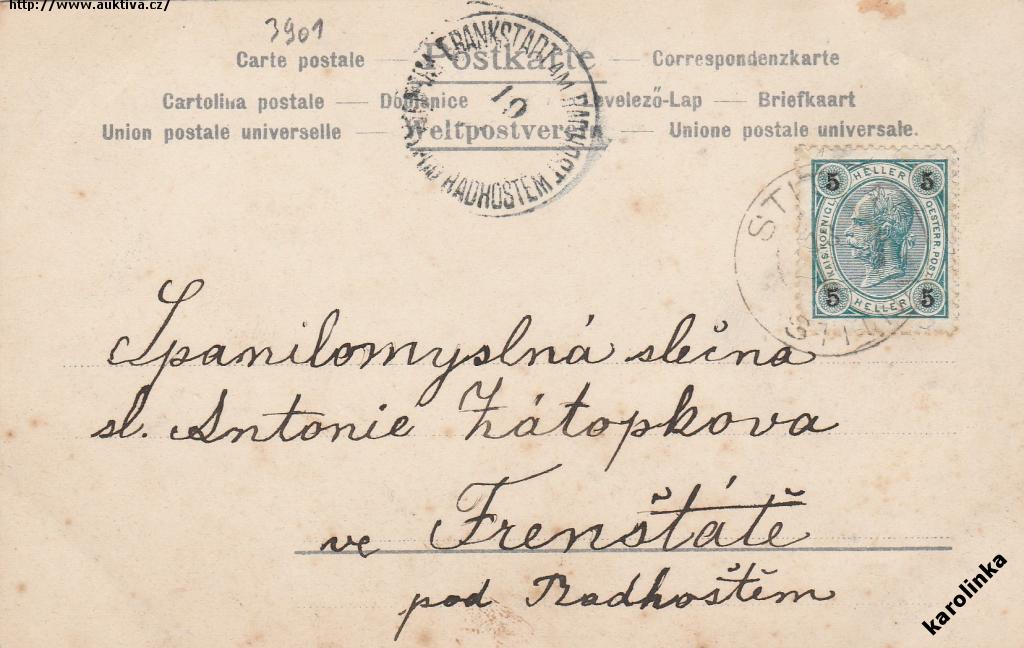 http://www.auktiva.cz/
3901
Carte postale — Postkarte — Correspondenzkarte
Cartolina postale — Dopisnice — Levelező-Lap — Briefkaart
Union postale universelle — Weltpostverein — Unione postale universale.
FRANKSTADT AM RADHOST
POD RADHOSTEM
10
5 HELLER 5
KAIS. KOENIGL. OESTERR. POST.
5 HELLER 5
Spanilomyslná slečna
sl. Antonie Zátopkova
ve Frenštátě
pod Radhoštěm
karolinka